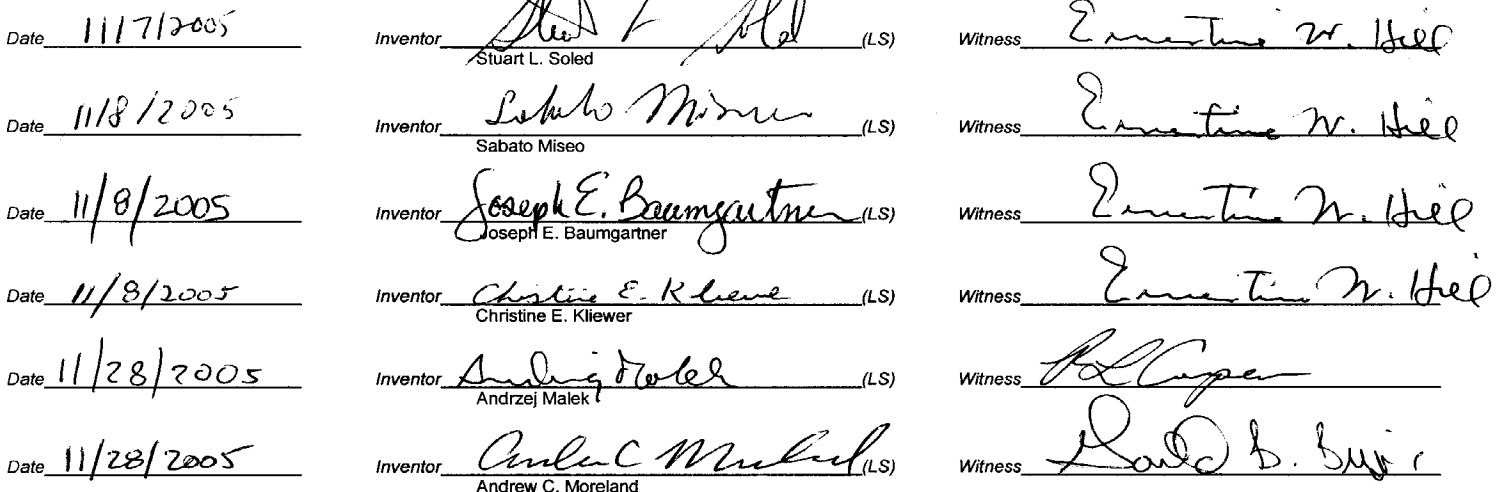 Date 11/7/2005 Inventor (LS) Witness Ernestine W. Hill
Stuart L. Soled
Date 11/8/2005 Inventor Sabato Miseo (LS) Witness Ernestine W. Hill
Sabato Miseo
Date 11/8/2005 Inventor Joseph E. Baumgartner (LS) Witness Ernestine W. Hill
Joseph E. Baumgartner
Date 11/8/2005 Inventor Christine E. Kliewer (LS) Witness Ernestine W. Hill
Christine E. Kliewer
Date 11/28/2005 Inventor Andrzej Malek (LS) Witness
Andrzej Malek
Date 11/28/2005 Inventor (LS) Witness
Andrew C. Moreland